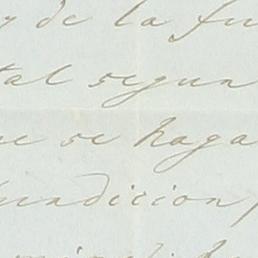 y de la fu
tal segun
ue se haga
undicion